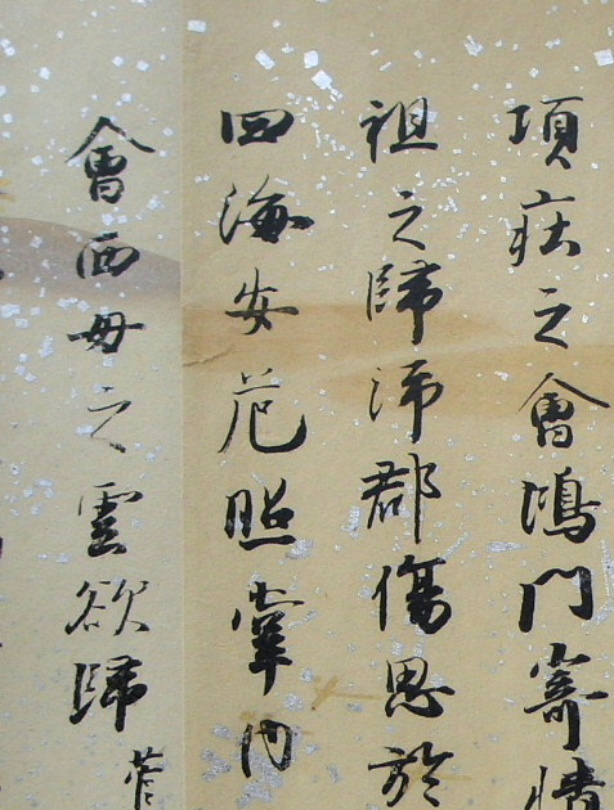 項荘之會鴻門寄情
祖之歸沛郡傷思於
四海安危照掌内
會西母之雲欲歸 菅